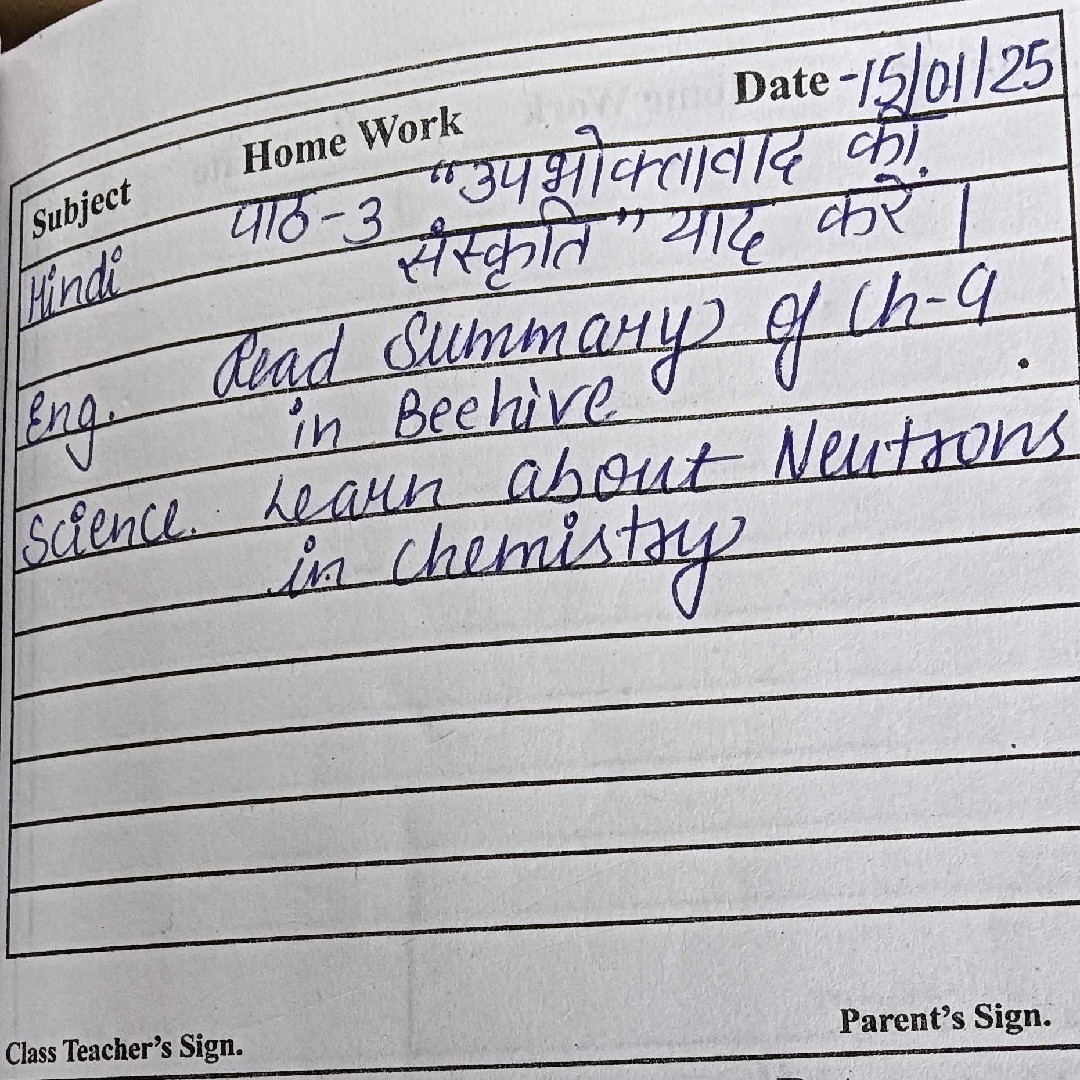 Home Work Date -15/01/25
Subject
Hindi पाठ-3 "उपभोक्तावाद की
संस्कृति" याद करें ।
Eng. Read Summary of Ch-9
in Beehive
Science. Learn about Neutrons
in chemistry
Class Teacher's Sign. Parent's Sign.